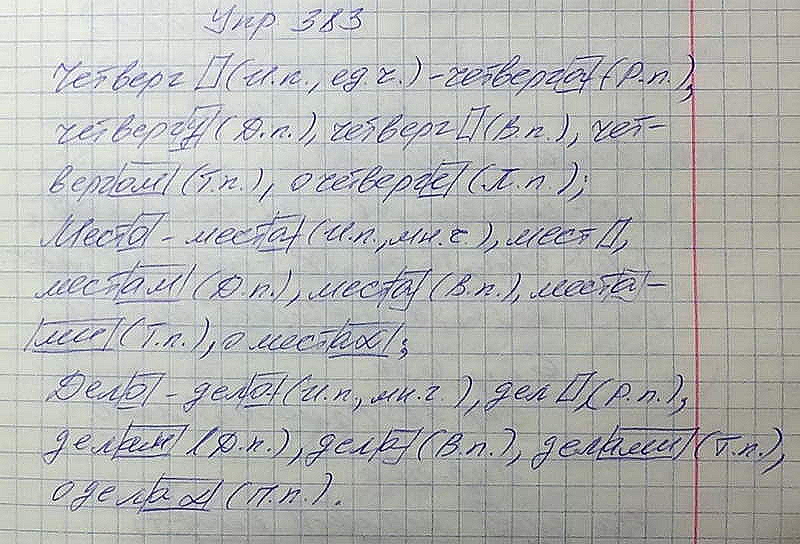 Упр 383
Четверг □ (И.п., ед.ч.) - четверга (Р.п.),
четвергу (Д.п.), четверг □ (В.п.), чет-
вергом (Т.п.), о четверге (П.п.);
Место - места (И.п., мн.ч.), мест □,
местам (Д.п.), места (В.п.), места-
ми (Т.п.), о местах;
Дело - дела (И.п., мн.ч.), дел □, (Р.п.),
делам (Д.п.), дела (В.п.), делами (Т.п.),
о делах (П.п.).